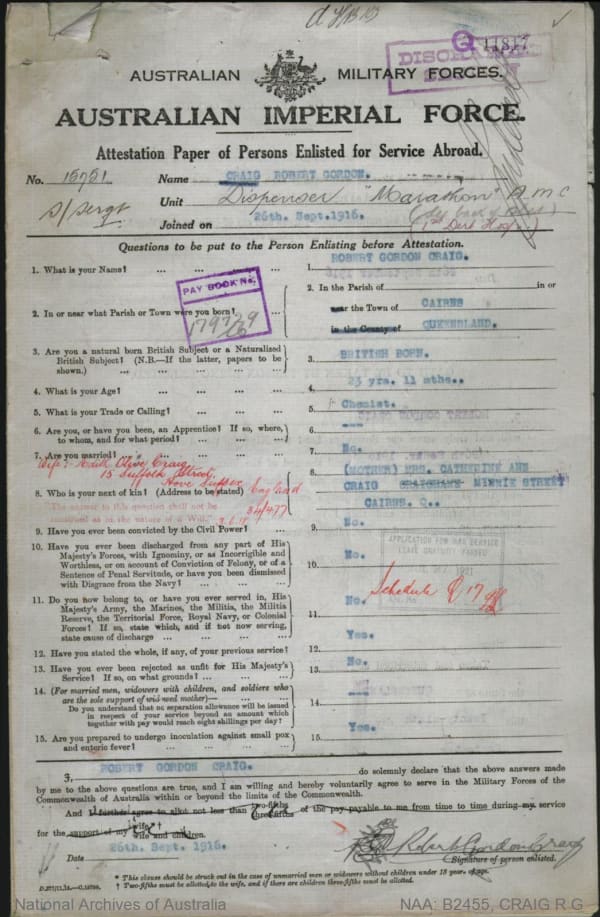 Q 11817
DISCHARGED
AUSTRALIAN MILITARY FORCES.
AUSTRALIAN IMPERIAL FORCE.
Attestation Paper of Persons Enlisted for Service Abroad.
No. 15751 Name CRAIG ROBERT GORDON.
S/Sergt Unit Dispenser "Marathon" A M C
Joined on 26th. Sept.1916. (1st Derb Hosp.)
Questions to be put to the Person Enlisting before Attestation.
1. What is your Name? ... ... ... ... 1. ROBERT GORDON CRAIG.
PAY BOOK No.
2. In or near what Parish or Town were you born? ... 2. In the Parish of in or
near the Town of CAIRNS
in the County of QUEENSLAND.
3. Are you a natural born British Subject or a Naturalized
British Subject? (N.B.—If the latter, papers to be
shown.) ... ... ... ... 3. BRITISH BORN.
4. What is your Age? ... ... ... ... 4. 23 yrs. 11 mths..
5. What is your Trade or Calling? ... ... ... 5. Chemist.
6. Are you, or have you been, an Apprentice? If so, where,
to whom, and for what period? ... ... ... 6. ---
7. Are you married? ... ... ... ... 7. No.
Wife:- Edith Olive Craig
15 Suffolk Street,
Hove Sussex
England
34/477
8. Who is your next of kin? (Address to be stated) 8. (MOTHER) MRS. CATHERINE ANN
CRAIG MINNIE STREET
CAIRNS. Q..
The answer to this question shall not be
construed as in the nature of a Will."
9. Have you ever been convicted by the Civil Power? ... 9. No.
10. Have you ever been discharged from any part of His
Majesty's Forces, with Ignominy, or as Incorrigible and
Worthless, or on account of Conviction of Felony, or of a
Sentence of Penal Servitude, or have you been dismissed
with Disgrace from the Navy? ... ... ... 10. No.
APPLICATION FOR WAR SERVICE
LEAVE GRATUITY PASSED
1921
Schedule Q 17
11. Do you now belong to, or have you ever served in, His
Majesty's Army, the Marines, the Militia, the Militia
Reserve, the Territorial Force, Royal Navy, or Colonial
Forces? If so, state which, and if not now serving,
state cause of discharge ... ... ... 11. No.
12. Have you stated the whole, if any, of your previous service? 12. Yes.
13. Have you ever been rejected as unfit for His Majesty's
Service? If so, on what grounds? ... ... 13. No.
14. (For married men, widowers with children, and soldiers who
are the sole support of widowed mother)—
Do you understand that no separation allowance will be issued
in respect of your service beyond an amount which
together with pay would reach eight shillings per day? 14. ---
15. Are you prepared to undergo inoculation against small pox
and enteric fever? ... ... ... ... 15. Yes.
I, ROBERT GORDON CRAIG. do solemnly declare that the above answers made
by me to the above questions are true, and I am willing and hereby voluntarily agree to serve in the Military Forces of the
Commonwealth of Australia within or beyond the limits of the Commonwealth.
And I further agree to allot not less than two-fifths three-fifths of the pay payable to me from time to time during my service
for the support of my wife wife and children.
Date 26th. Sept. 1916. Robert Gordon Craig
Signature of person enlisted.
* This clause should be struck out in the case of unmarried men or widowers without children under 18 years of age.
† Two-fifths must be allotted to the wife, and if there are children three-fifths must be allotted.
National Archives of Australia NAA: B2455, CRAIG R G